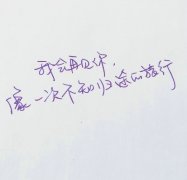 我会再见你，
像一次不知归途的旅行